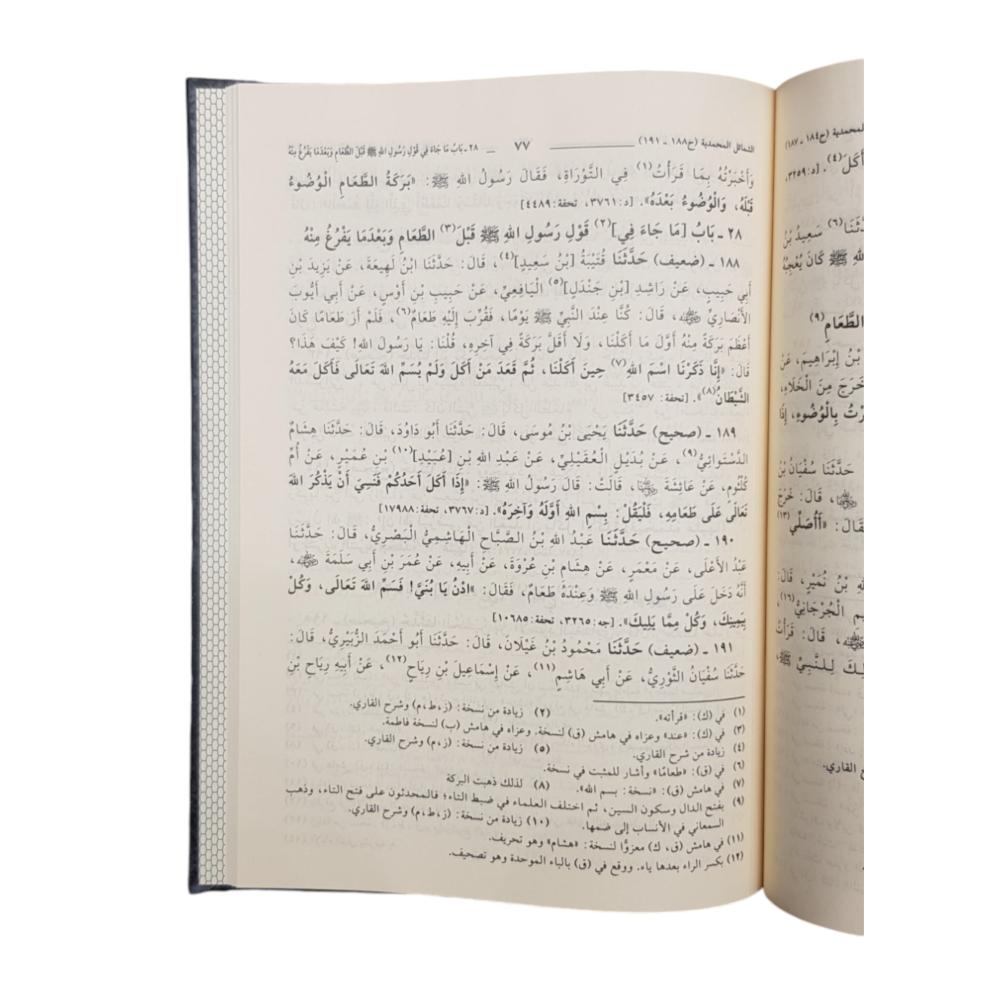 الشمائل المحمدية (ح١٨٨ - ١٩١) ٧٧ ٢٨ - بَابُ مَا جَاءَ فِي قَوْلِ رَسُولِ اللهِ ﷺ قَبْلَ الطَّعَامِ وَبَعْدَمَا يَفْرُغُ مِنْهُ
وَأَخْبَرْتُهُ بِمَا قَرَأْتُ(١) فِي التَّوْرَاةِ، فَقَالَ رَسُولُ اللهِ ﷺ: «بَرَكَةُ الطَّعَامِ الْوُضُوءُ
قَبْلَهُ، وَالْوُضُوءُ بَعْدَهُ». [د:٣٧٦١، تحفة:٤٤٨٩]
٢٨ - بَابُ [مَا جَاءَ فِي](٢) قَوْلِ رَسُولِ اللهِ ﷺ قَبْلَ(٣) الطَّعَامِ وَبَعْدَمَا يَفْرُغُ مِنْهُ
١٨٨ - (ضعيف) حَدَّثَنَا قُتَيْبَةُ [بْنُ سَعِيدٍ](٤)، قَالَ: حَدَّثَنَا ابْنُ لَهِيعَةَ، عَنْ يَزِيدَ بْنِ
أَبِي حَبِيبٍ، عَنْ رَاشِدِ [بْنِ جَنْدَلٍ](٥) الْيَافِعِيِّ، عَنْ حَبِيبِ بْنِ أَوْسٍ، عَنْ أَبِي أَيُّوبَ
الْأَنْصَارِيِّ ﷺ، قَالَ: كُنَّا عِنْدَ النَّبِيِّ ﷺ يَوْمًا، فَقُرِّبَ إِلَيْهِ طَعَامٌ(٦)، فَلَمْ أَرَ طَعَامًا كَانَ
أَعْظَمَ بَرَكَةً مِنْهُ أَوَّلَ مَا أَكَلْنَا، وَلَا أَقَلَّ بَرَكَةً فِي آخِرِهِ، قُلْنَا: يَا رَسُولَ اللهِ! كَيْفَ هَذَا؟
قَالَ: «إِنَّا ذَكَرْنَا اسْمَ اللهِ(٧) حِينَ أَكَلْنَا، ثُمَّ قَعَدَ مَنْ أَكَلَ وَلَمْ يُسَمِّ اللهَ تَعَالَى فَأَكَلَ مَعَهُ
الشَّيْطَانُ(٨)». [تحفة: ٣٤٥٧]
١٨٩ - (صحيح) حَدَّثَنَا يَحْيَى بْنُ مُوسَى، قَالَ: حَدَّثَنَا أَبُو دَاوُدَ، قَالَ: حَدَّثَنَا هِشَامٌ
الدَّسْتَوَائِيُّ(٩)، عَنْ بُدَيْلٍ الْعُقَيْلِيِّ، عَنْ عَبْدِ اللهِ بْنِ [عُبَيْدِ](١٠) بْنِ عُمَيْرٍ، عَنْ أُمِّ
كُلْثُومٍ، عَنْ عَائِشَةَ، قَالَتْ: قَالَ رَسُولُ اللهِ ﷺ: «إِذَا أَكَلَ أَحَدُكُمْ فَنَسِيَ أَنْ يَذْكُرَ اللهَ
تَعَالَى عَلَى طَعَامِهِ، فَلْيَقُلْ: بِسْمِ اللهِ أَوَّلَهُ وَآخِرَهُ». [د:٣٧٦٧، تحفة:١٧٩٨٨]
١٩٠ - (صحيح) حَدَّثَنَا عَبْدُ اللهِ بْنُ الصَّبَّاحِ الْهَاشِمِيُّ الْبَصْرِيُّ، قَالَ: حَدَّثَنَا
عَبْدُ الْأَعْلَى، عَنْ مَعْمَرٍ، عَنْ هِشَامِ بْنِ عُرْوَةَ، عَنْ أَبِيهِ، عَنْ عُمَرَ بْنِ أَبِي سَلَمَةَ،
أَنَّهُ دَخَلَ عَلَى رَسُولِ اللهِ ﷺ وَعِنْدَهُ طَعَامٌ، فَقَالَ: «ادْنُ يَا بُنَيَّ! فَسَمِّ اللهَ تَعَالَى، وَكُلْ
بِيَمِينِكَ، وَكُلْ مِمَّا يَلِيكَ». [جه:٣٢٦٥، تحفة:١٠٦٨٥]
١٩١ - (ضعيف) حَدَّثَنَا مَحْمُودُ بْنُ غَيْلَانَ، قَالَ: حَدَّثَنَا أَبُو أَحْمَدَ الزُّبَيْرِيُّ، قَالَ:
حَدَّثَنَا سُفْيَانُ الثَّوْرِيُّ، عَنْ أَبِي هَاشِمٍ(١١)، عَنْ إِسْمَاعِيلَ بْنِ رِيَاحٍ(١٢)، عَنْ أَبِيهِ رِيَاحِ بْنِ
(١) في (ك): «قرأته». (٢) زيادة من نسخة: (ز،ط،م) وشرح القاري.
(٣) في (ك): «عند» وعزاه في هامش (ق) لنسخة. وعزاه في هامش (ب) لنسخة فاطمة.
(٤) زيادة من شرح القاري. (٥) زيادة من نسخة: (ز،م) وشرح القاري.
(٦) في (ق): «طعامًا» وأشار للمثبت في نسخة.
(٧) في هامش (ق): «نسخة: بسم الله». (٨) لذلك ذهبت البركة
(٩) بفتح الدال وسكون السين، ثم اختلف العلماء في ضبط التاء؛ فالمحدثون على فتح التاء، وذهب
السمعاني في الأنساب إلى ضمها. (١٠) زيادة من نسخة: (ز،ط،م) وشرح القاري.
(١١) في هامش (ق، ك) معزوًا لنسخة: «هشام» وهو تحريف.
(١٢) بكسر الراء بعدها ياء. ووقع في (ق) بالباء الموحدة وهو تصحيف.
المحمدية (ح١٨٤ - ١٨٧)
أَكَلَ(٤). [د:٣٢٥٩،
سَعِيدُ بْنُ
ﷺ كَانَ يُعْجِبُهُ
الطَّعَامِ(٩)
بْنُ إِبْرَاهِيمَ، عَنْ
خَرَجَ مِنَ الْخَلَاءِ،
بِالْوُضُوءِ، إِذَا
حَدَّثَنَا سُفْيَانُ بْنُ
قَالَ: خَرَجَ
قَالَ: «أَأُصَلِّي(١٣)
بْنُ نُمَيْرٍ، قَالَ:
الْجُرْجَانِيُّ(١٦)،
قَالَ: قَرَأْتُ
لِلنَّبِيِّ ﷺ،
القاري.